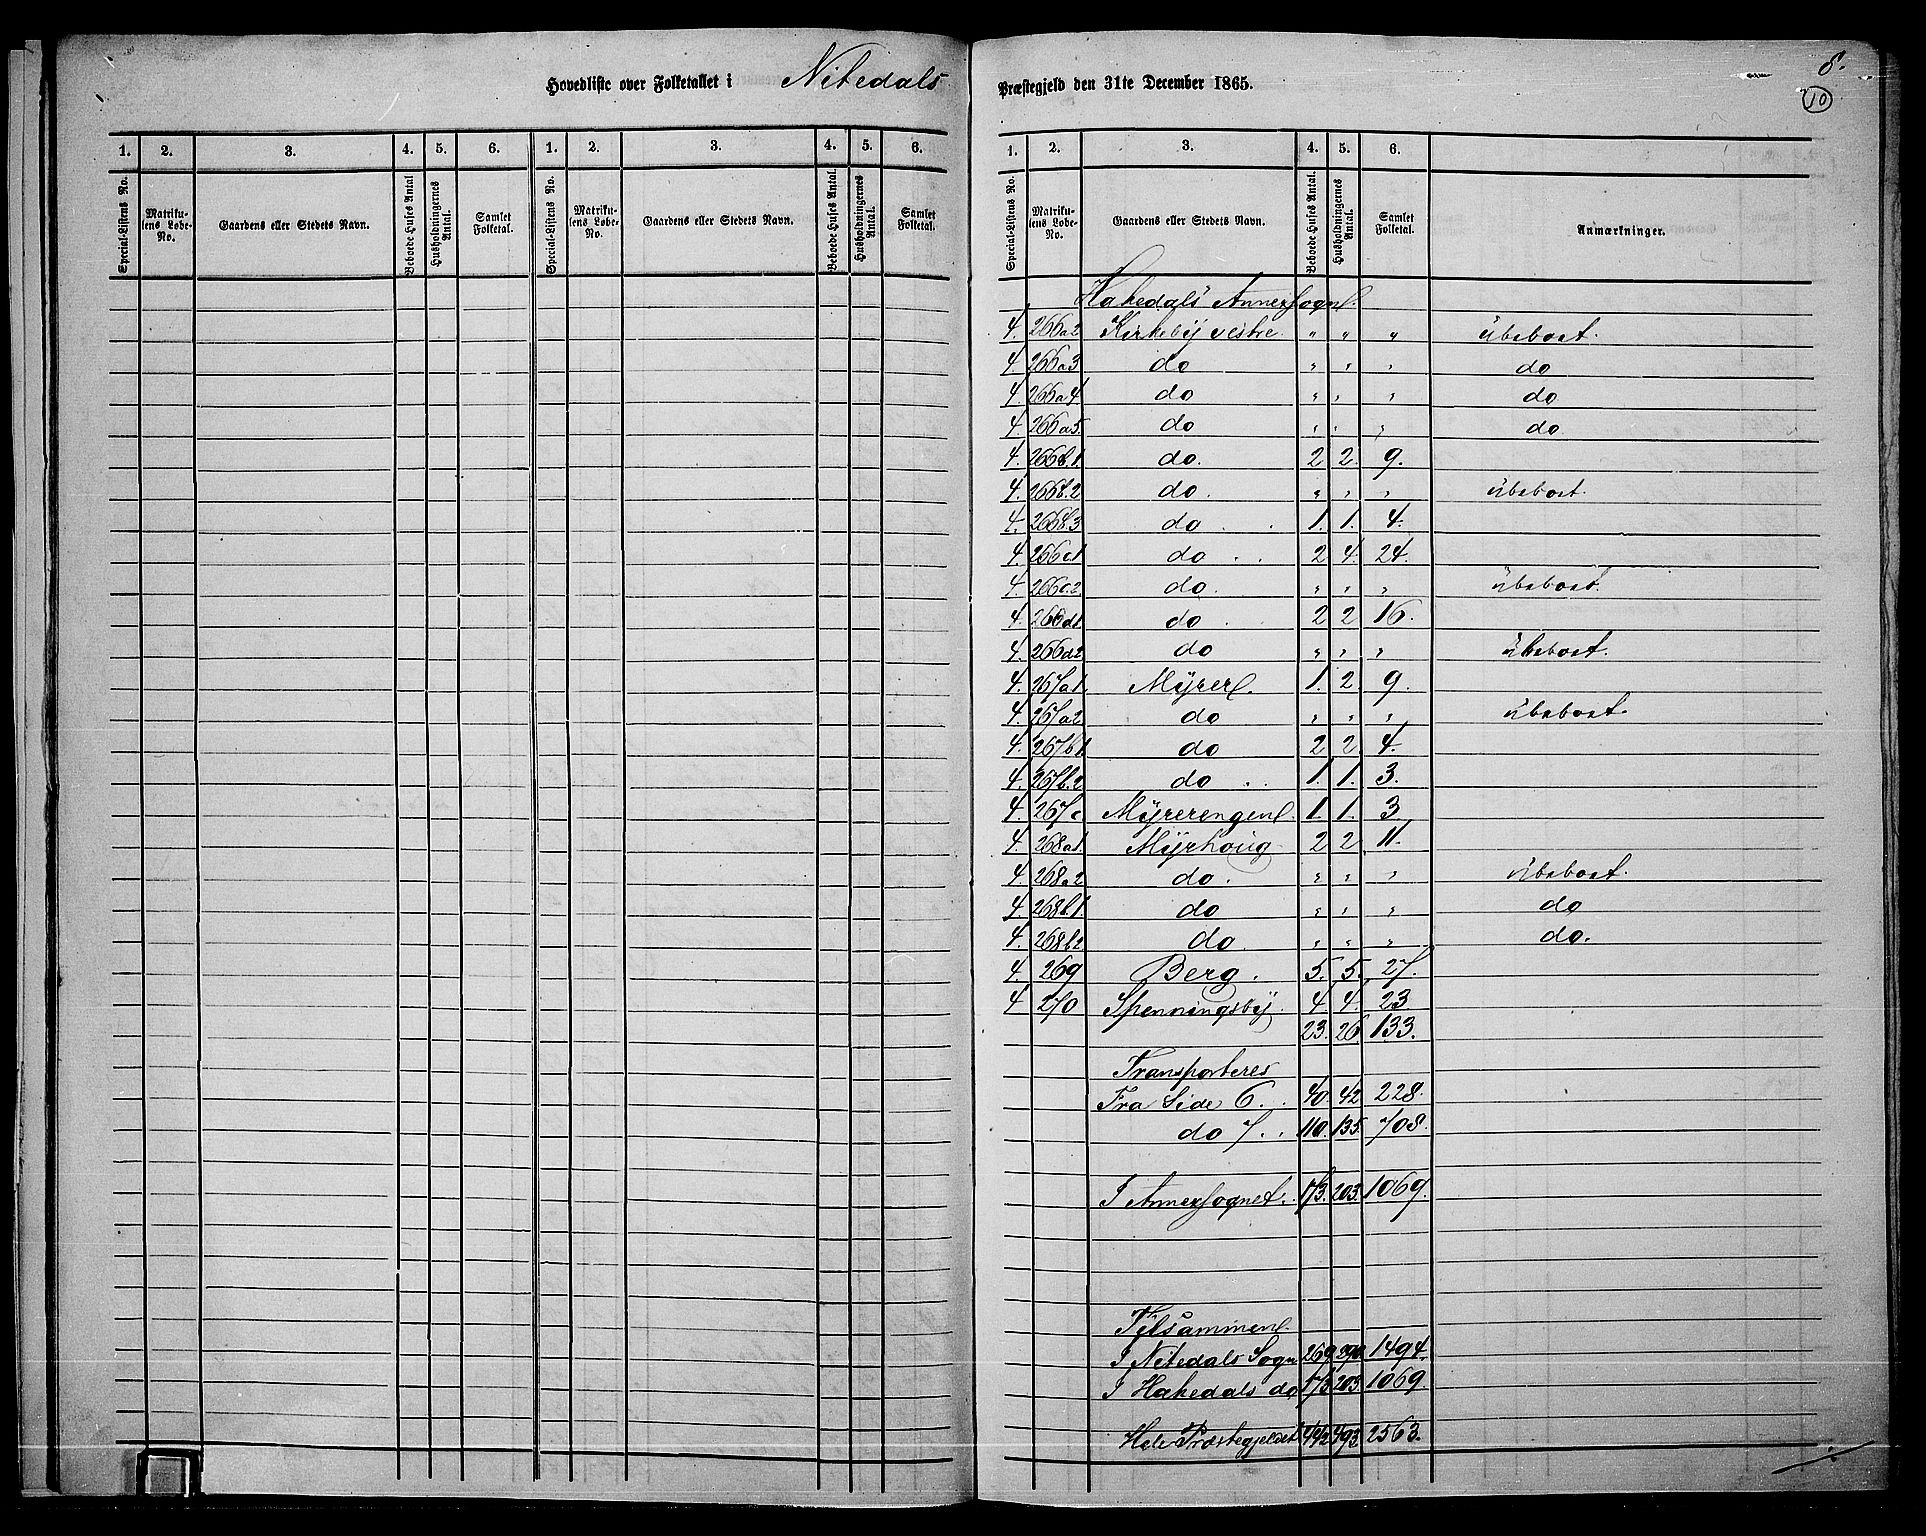 8.
10
Hovedliste over Folketallet i Nitedals Præstegjeld den 31te December 1865.
1. 2. 3. 4. 5. 6. 1. 2. 3. 4. 5. 6.
Special-Listens No. Matrikulens Løbe-No. Gaardens eller Stedets Navn. Beboede Huses Antal Husholdningernes Antal. Samlet Folketal. Special-Listens No. Matrikulens Løbe-No. Gaardens eller Stedets Navn. Beboede Huses Antal. Husholdningernes Antal. Samlet Folketal.
1. 2. 3. 4. 5. 6.
Special-Listens No. Matrikulens Løbe-No. Gaardens eller Stedets Navn. Beboede Huses Antal. Husholdningernes Antal. Samlet Folketal. Anmærkninger.
Hakedals Annexsogn.
4. 266a2 Kirkeby vestre " " " ubeboet.
4. 266a3 do " " " do
4. 266a4. do " " " do
4. 266a5. do " " " do
4. 266b.1. do. 2 2. 9.
4. 266b.2 do. " " " ubeboet.
4. 266b.3 do . . 1. 1. 4.
4. 266c1 do . . 2 4. 24.
4. 266c.2 do. " " " ubeboet.
4. 266d1. do . 2 2 16.
4. 266d2 do " " " ubeboet.
4. 267a1 Myrer. 1. 2 9.
4. 267a2 do " " " ubeboet.
4. 267b1 do 2 2. 4.
4. 267b.2 do . . 1. 1. 3.
4. 267c Myrerengen. 1. 1. 3
4. 268a1. Myrhoug 2 2 11.
4. 268a2 do. " " " ubeboet.
4. 268b.1. do " " " do
4. 268b2 do. " " " do.
4. 269 Berg. 5. 5. 27.
4 270 Spenningsby. 4. 4. 23
23. 26. 133.
Transporteres
Fra Side 6. . 40. 42. 228.
do 7. . 110. 135. 708.
I Annexsognet. . 173. 203. 1069.
Tilsammen.
I Nitedals Sogn 269 290. 1494.
I Hakedals do 173 203. 1069.
Hele Præstegjeldet 442 493. 2563.